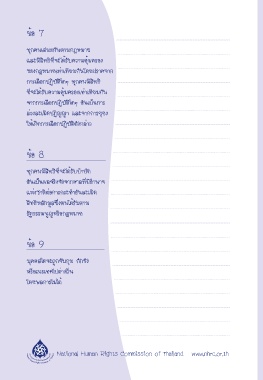 ข้อ 7
ทุกคนเสมอกันตามกฎหมาย
และมีสิทธิที่จะได้รับความคุ้มครอง
ของกฎหมายเท่าเทียมกันโดยปราศจาก
การเลือกปฏิบัติใดๆ ทุกคนมีสิทธิ
ที่จะได้รับความคุ้มครองเท่าเทียมกัน
จากการเลือกปฏิบัติใดๆ อันเป็นการ
ล่วงละเมิดปฏิญญา และจากการยุยง
ให้เกิดการเลือกปฏิบัติดังกล่าว
ข้อ 8
ทุกคนมีสิทธิที่จะได้รับการบำบัด
อันเป็นผลจริงจังจากศาลที่มีอำนาจ
แห่งชาติต่อการกระทำอันละเมิด
สิทธิหลักมูลซึ่งตนได้รับตาม
รัฐธรรมนูญหรือกฎหมาย
ข้อ 9
บุคคลใดจะถูกจับกุม กักขัง
หรือเนรเทศไปต่างถิ่น
โดยพลการไม่ได้
National Human Rights Commission of Thailand www.nhrc.or.th